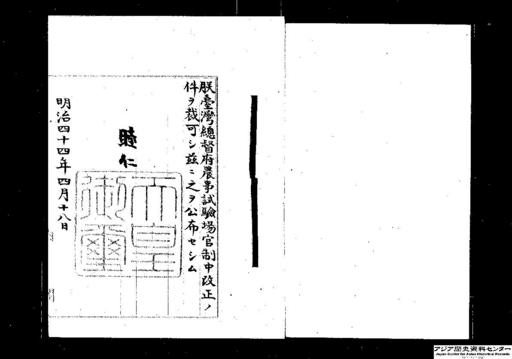 朕臺灣總督府農事試驗場官制中改正ノ
件ヲ裁可シ茲ニ之ヲ公布セシム
睦仁
天皇
御璽
明治四十四年四月十八日
アジア歴史資料センター
Japan Center for Asian Historical Records